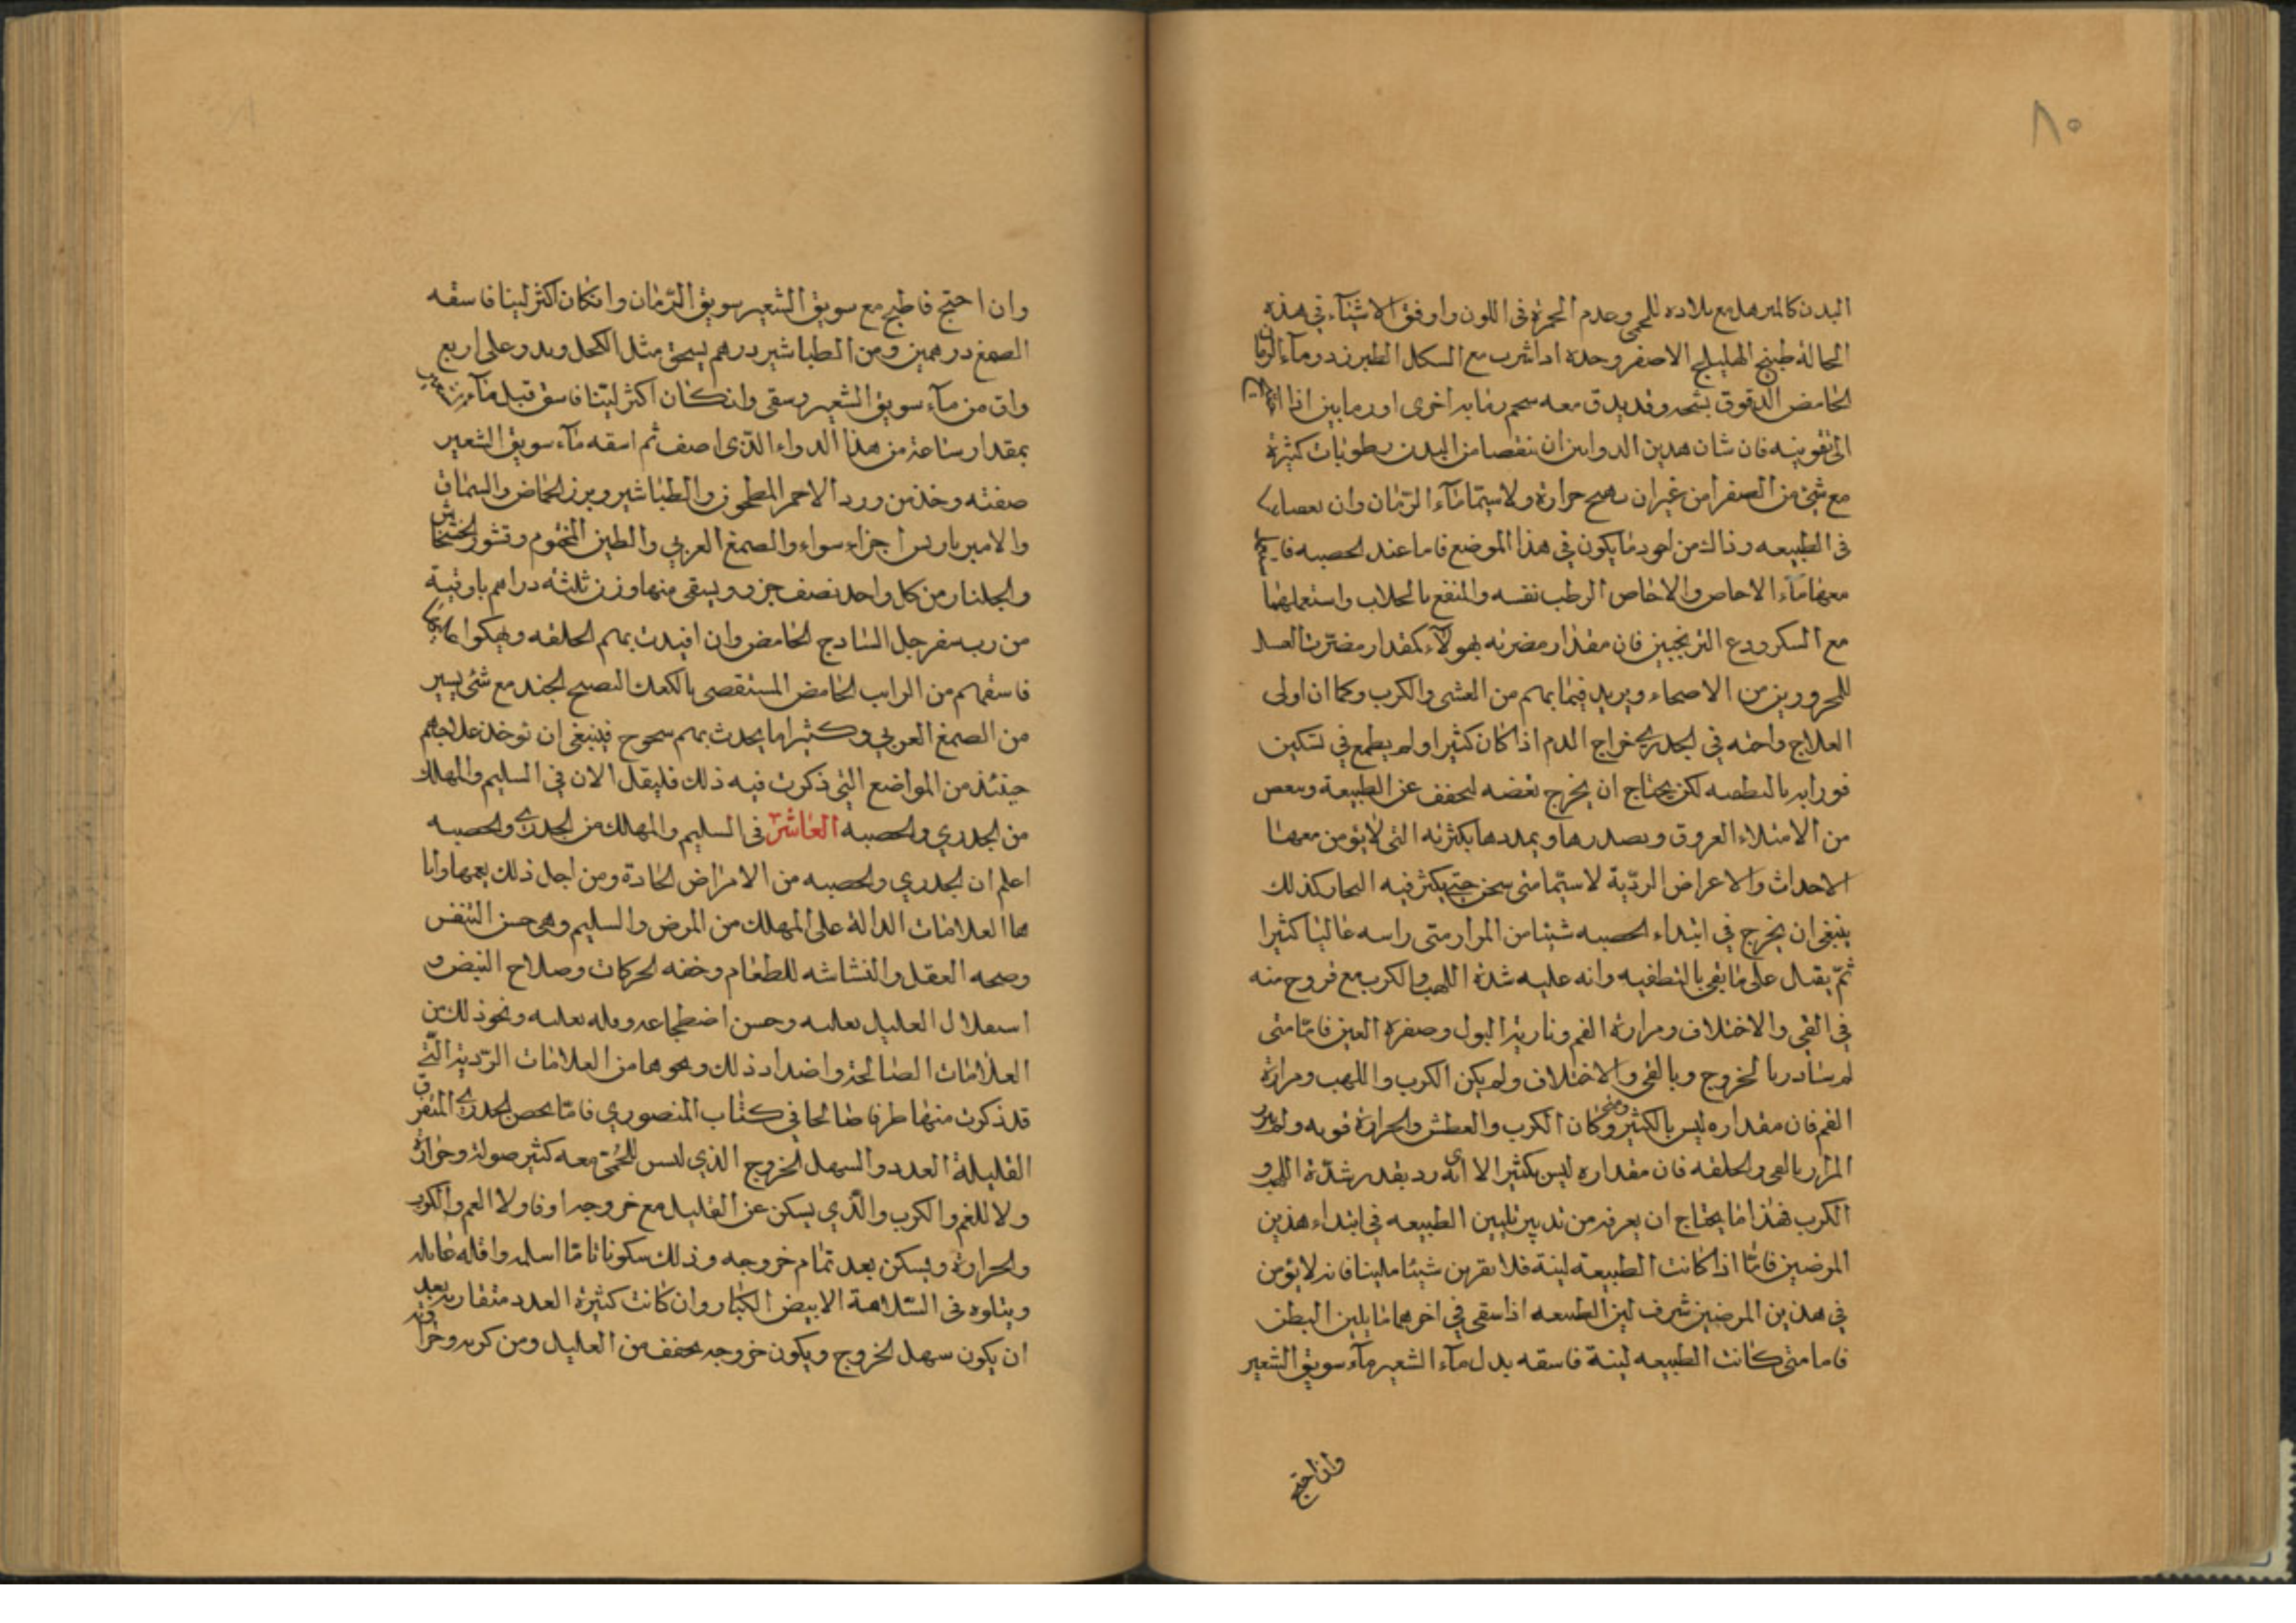 ٨٥
البدن كالمترهل مع بلاده للحمى وعدم الحمرة فى اللون واوفق الاشيآء فى هذه
الحالة طبيخ الهليلج الاصفر وحده اذا شرب مع السكر الطبرزد ومآء الرمان
الحامض المدقوق بشحمه وقد يدق معه شحم رمانه اخرى او رمانين اذا احتيج
الى تقويته فان شان هذين الدوائين ان ينقصا من البدن رطوبات كثيرة
مع شئ من الصفرا من غير ان يهيج حرارة ولاسيما مآء الرمان وان
فى الطبيعه وذلك من اجود ما يكون فى هذا الموضع فاما عند الحصبه
معها مآء الاجاص والاجاص الرطب نفسه والمنقع بالجلاب واستعملهما
مع السكر ودع الترنجبين فان مقدار مضرته بهولآء كمقدار مضرت العسل
للمحرورين من الاصحاء ويزيد فيما بهم من الغشى والكرب وكما ان اولى
العلاج واحقه فى الجدرى اخراج الدم اذا كان كثيرا ولم يطمع فى تسكين
فورانه بالتطفيه لكن يحتاج ان يخرج بعضه ليخفف عن الطبيعة وينقص
من الامتلاء العروق ويمددها بكثرته التى لا يؤمن معها
الاحداث والاعراض الرديّة لاسيّما متى سخن حتى يكثر فيه البخار كذلك
ينبغى ان يخرج فى ابتداء الحصبه شيئا من المرار متى راسه غالبا كثيرا
ثمّ يقبل على ما بقى بالتطفيه وانه عليه شدة اللهب والكرب مع خروج منه
فى القى والاختلاف ومرارة الفم ونارية البول وصفرة العين فامّا متى
لم يبادر بالخروج وبالقى والاختلاف ولم يكن الكرب واللهب ومرارة
الفم فان مقداره ليس بالكثير ومتى كان الكرب والعطش والحرارة قويه ولم يبدر
المرار بالقى والخلفه فان مقداره ليس بكثير الا انه ردى بقدر شدّة اللهب و
الكرب فهذا ما يحتاج ان يعرف من تدبير تليين الطبيعه فى ابتداء هذين
المرضين فامّا اذا كانت الطبيعه لينة فلا تقربن شيئا ملينا فانه لا يؤمن
فى هذين المرضين شرف لين الطبيعه اذا سقى فى اخرهما ما يلين البطن
فاما متى كانت الطبيعه لينة فاسقه بدل مآء الشعير مآء سويق الشعير
وان احتيج
وان احتيج فاطبخ مع سويق الشعير سويق الرّمان وان كان اكثر لينا فاسقه
الصمغ درهمين ومن الطباشير درهم يسحق مثل الكحل ويذر على اربع
واق من مآء سويق الشعير وسقى وان كان اكثر لينا فاسق قبل مآء الشعير
بمقدار ساعة من هذا الدواء الذى اصف ثم اسقه مآء سويق الشعير
صفته وخذ من ورد الاحمر المطحون والطباشير وبزر الحماض والسماق
والامير باريس اجزاء سواء والصمغ العربي والطين المختوم وقشور الخشخاش
والجلنار من كل واحد نصف جزو ويسقى منها وزن ثلثة دراهم باوقية
من رب سفرجل السّادج الحامض وان افيدت بهم الخلفه
فاسقهم من الرايب الحامض المستقصى بالكعك النضيج الجيد مع شئ يسير
من الصمغ العربي وكثيرا ما يحدث بهم سحوج فينبغى ان توخذ علاجهم
حينئذ من المواضع التى ذكرت فيه ذلك فليقل الان فى السليم والمهلك
من الجدري والحصبه العاشر فى السليم والمهلك من الجدرى والحصبه
اعلم ان الجدري والحصبه من الامراض الحادة ومن اجل ذلك يعمها وايا
ها العلامات الدالة على المهلك من المرض والسليم وهى حسن التنفس
وصحه العقل والنشاشه للطعام وخفه الحركات وصلاح النبض و
العليل وحسن اضطجاعه ونحو ذلك من
العلامات الصالحة واضداد ذلك ونحوها من العلامات الرّدية التى
قد ذكرت منها طرفا صالحا فى كتاب المنصوري فامّا يخص الجدرى المتفرق
القليلة العدد والسهل الخروج الذي ليس للحمى معه كثير صولة وحرارة
ولا للغم والكرب والذي يسكن عن القليل مع خروجه اوفا ولا الغم والكرب
والحرارة ويسكن بعد تمام خروجه وذلك سكونا تامّا اسلمه واقله غايله
ويتلوه فى السّلامة الابيض الكبار وان كانت كثيرة العدد متقاربه بعد
ان يكون سهل الخروج ويكون خروجه يخفف من العليل ومن كربه وحرارته